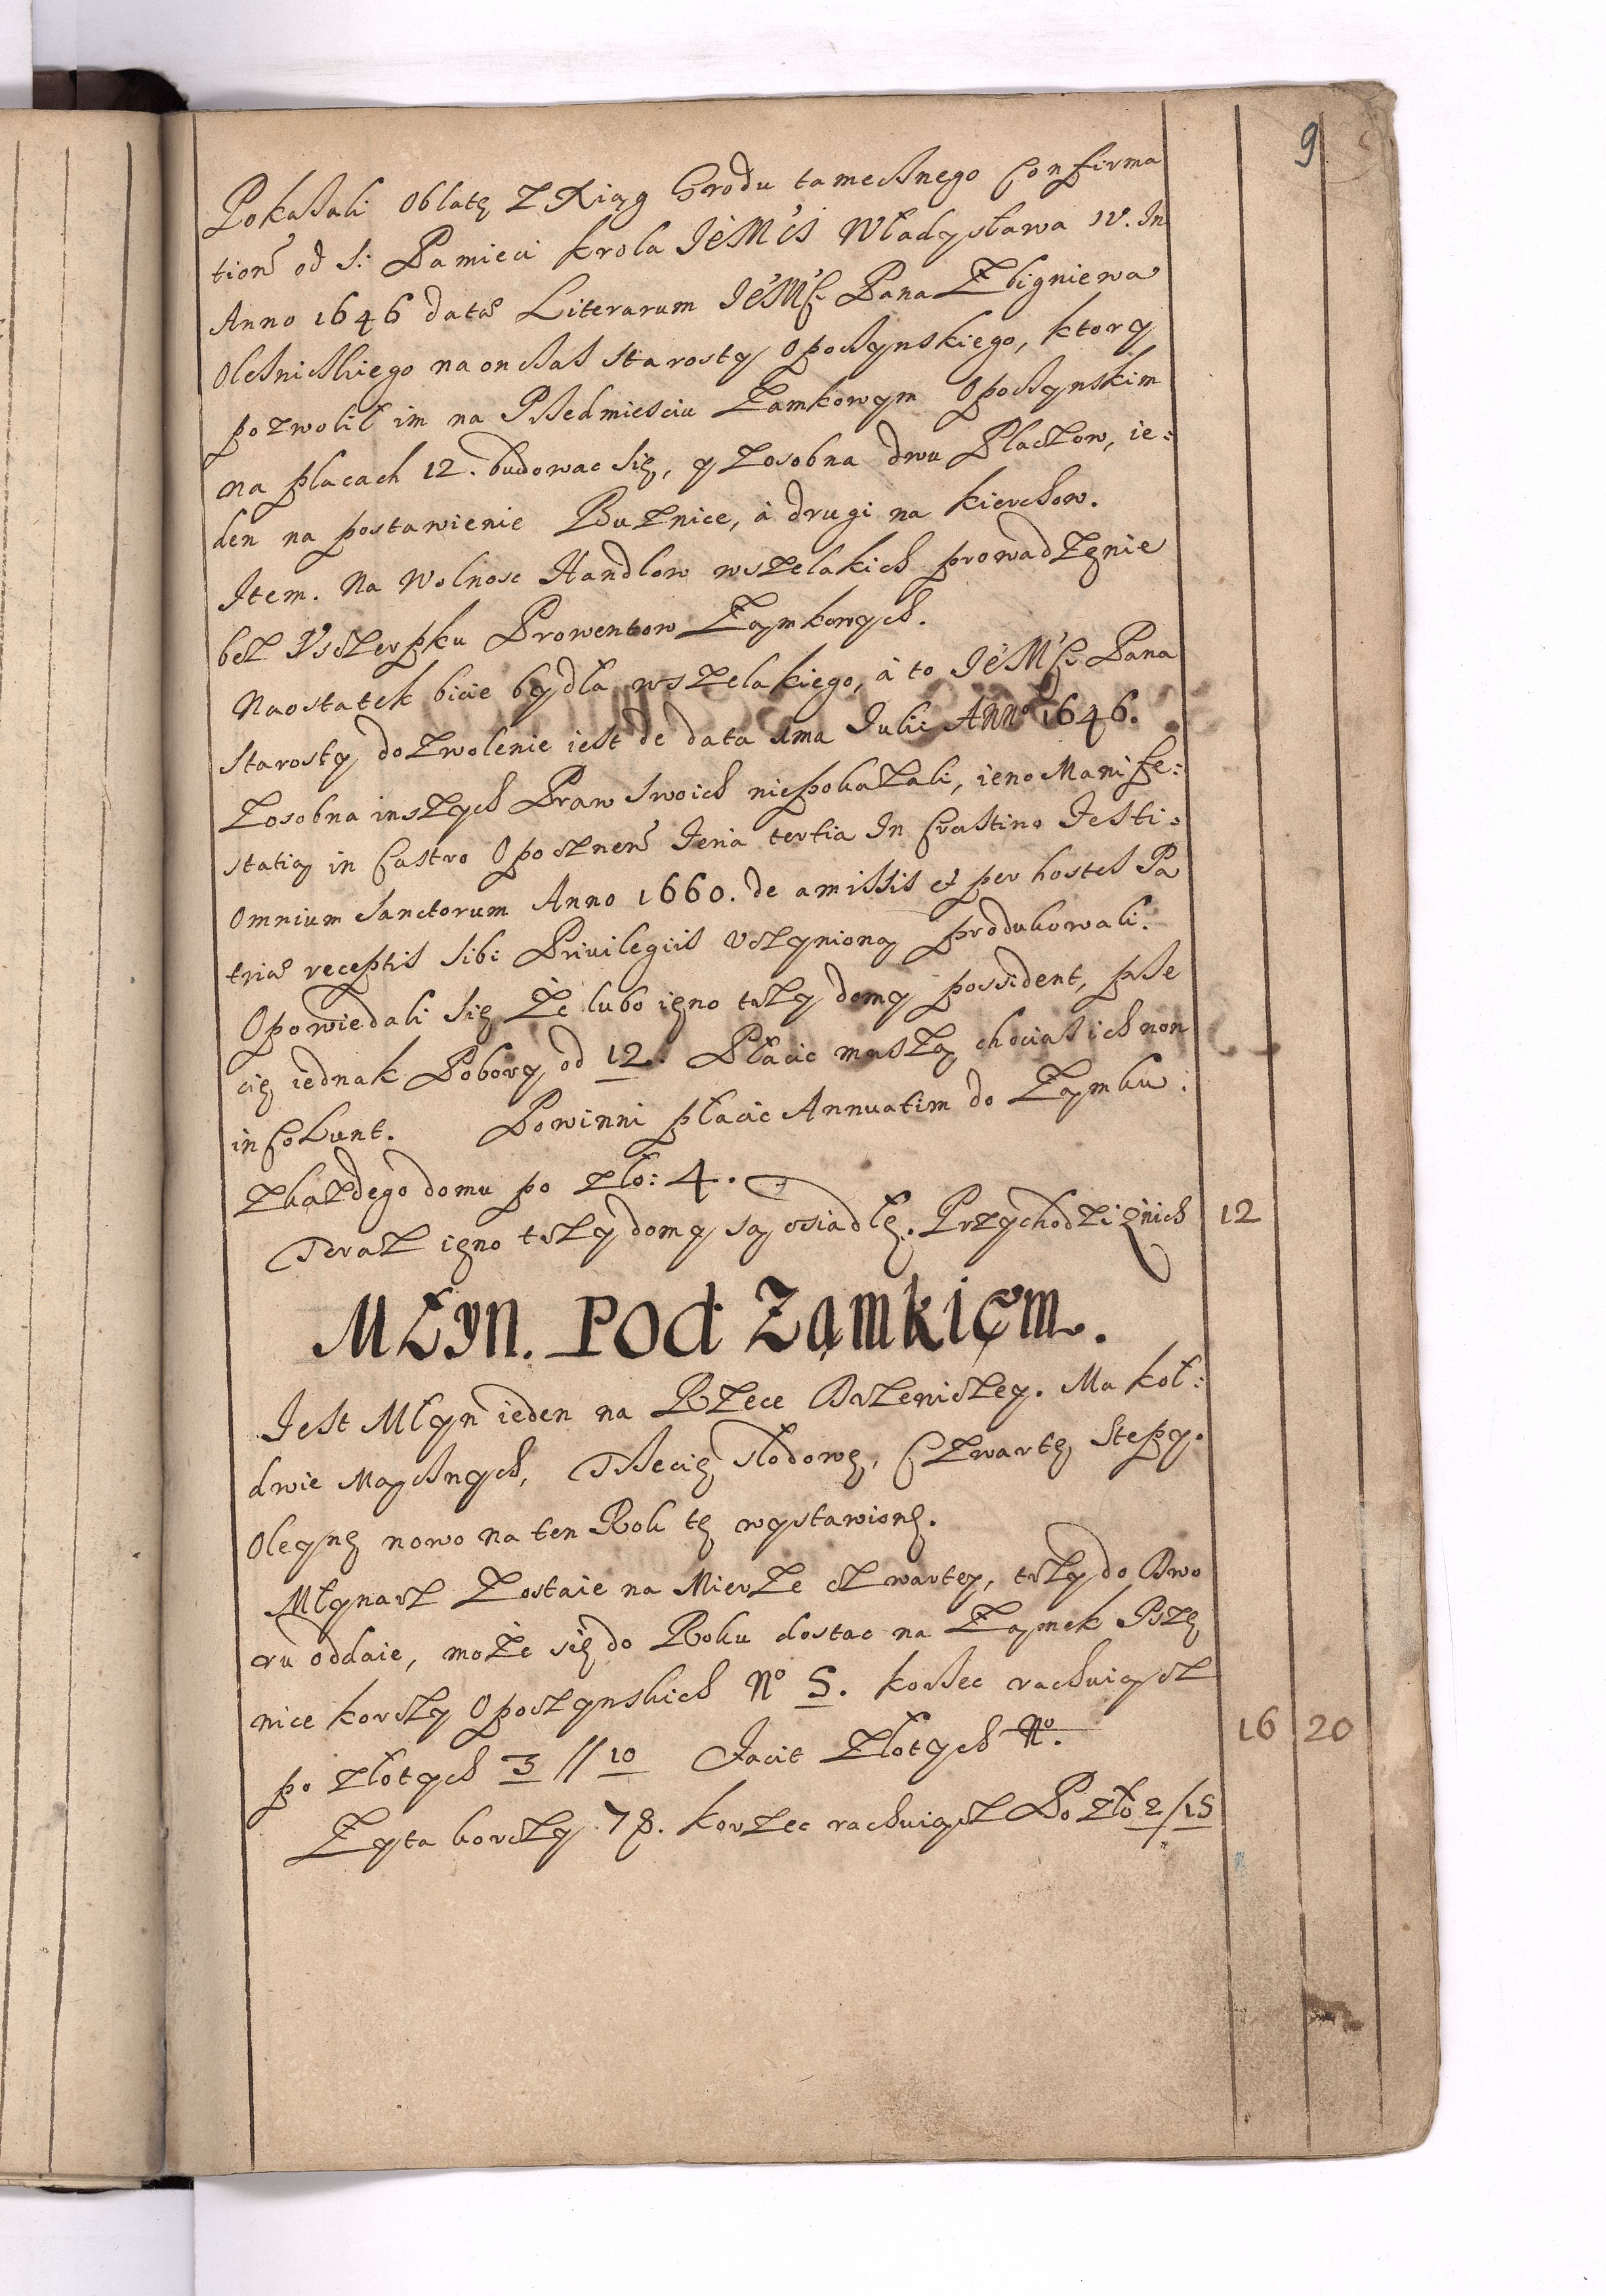 9
Pokazali Oblatę z Xiąg Grodu tamecznego Confirma
tion̄ od S: Pamieci Krola JéMći Władysława IV. In
Anno 1646 datæ Literarum JéMći Pana Zbigniewa
Olesnickiego na on czas Starosty Opoczynskiego, ktory
pozwolił im na Przedmiesciu Zamkowym Opoczynskim
na placach 12. budowac się, y zosobna dwu Placzow, ie:
den na postawienie Buznice, à drugi na Kierchow.
Item. Na Wolnosc Handlow wszelakich prowadzęnie
bez Vsczerpku Prowentow Ząmkowych.
Naostatek bicie bydła wszelakiego, à to JéMći Pana
Starosty dozwolenie iest de data 1ma Julii Ann° 1646.
Zosobna inszych Praw swoich niepokazali, ieno Manife:
statią in Castro Opocznen̄ Feria tertia In Crastino Festi:
Omnium Sanctorum Anno 1660. de amissis et per hostes Pa
triæ receptis sibi Privilegiis vczynioną produkowali.
Opowiedali się że lubo ięno trzy domy possident, prze
cię iednak Pobory od 12. Płacic muszą chociasz ich non
incolunt. Powinni płacic Annuatim do Ząmku:
zkazdego domu po zło: 4.
Teraz ięno trzy domy są osiadłę. Przychodzi znich 12
MŁYN. POd ZąmkiĘm.
Jest Młyn ieden na Rzece Brzeniczey. Ma koł:
dwie Mącznych, Trzecię słodowę, Czwartę Stępy.
Olegnę nowo na ten Rok tę wystawionę.
Młynarz Zostaie na Mierze czwartey, trzy do Dwo
ru oddaie, może się do Roku dostac na Ząmek Pszę
nice korczy Opoczynskich N° 5. korzec rachuiącz
po złotych 3 // 10 Facit Złotych N°. 16 20
Zyta korczy 78. Korzec rachuiącz Po zło 2/15